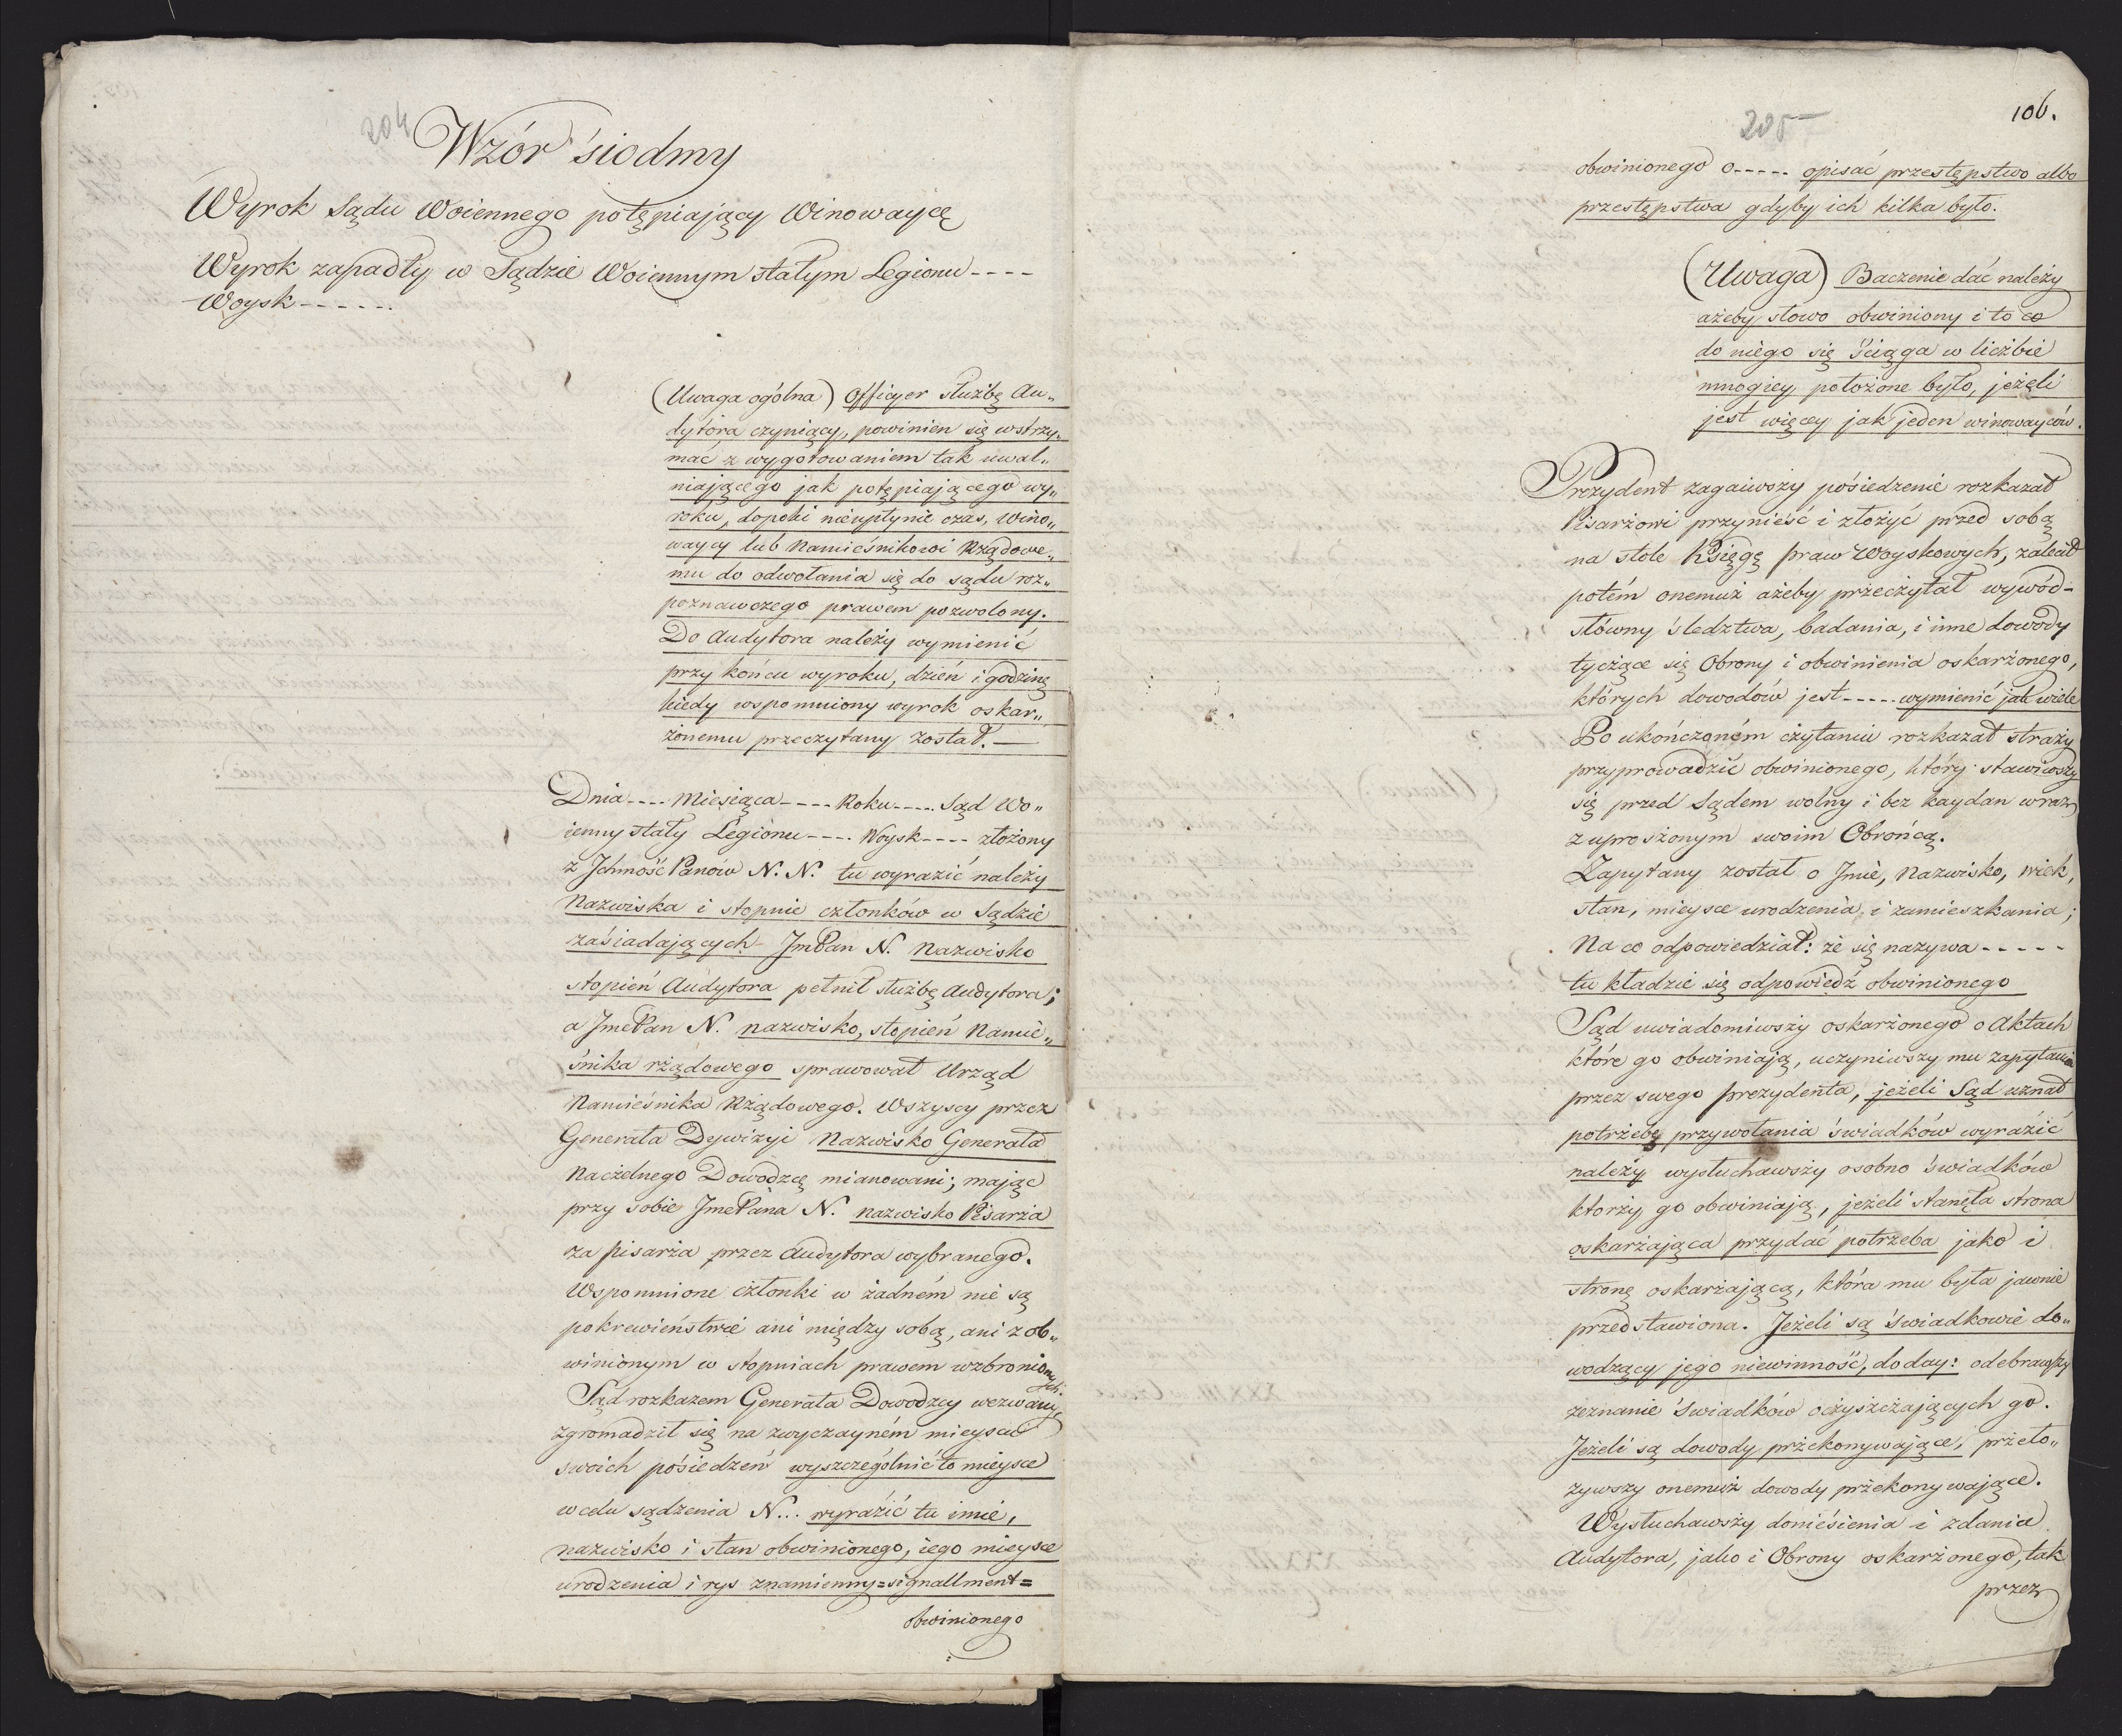 204
Wzór śiodmy
Wyrok Sądu Woiennego potępiający Winowaycę
Wyrok zapadły w Sądzie Woiennym stałym Legionu----
Woysk------
(Uwaga ogólna) Officyer służbę Au„
dytora czyniący, powinien się wstrzy„
mać z wygotowaniem tak uwal„
niającego jak potępiającego wy„
roku, dopoki nieupłynie czas, Wino„
waycy lub Namieśnikowi Rządowe„
mu do odwołania się do sądu roz„
poznawczego prawem pozwolony.
Do Audytora należy wymienić
przy końcu wyroku, dzień i godzinę
kiedy wspomniony wyrok oskar„
żonemu przeczytany został.—
Dnia---- Miesiąca---- Roku---- Sąd Wo„
ienny stały Legionu---- Woysk---- złożony
z Ichmość Panów N. N. tu wyrazić należy
Nazwiska i stopnie członków w Sądzie
zaśiadaiących- JmPan N. Nazwisko
stopień Audytora pełnił służbę Audytora;
a JmePan N. nazwisko, stopień Namie„
śnika rżądowego sprawował Urząd
Namieśnika Rżądowego. Wszyscy przez
Generała Dywizyi Nazwisko Generała
Naczelnego Dowodzcę mianowani; mając
przy sobie JmePana N. nazwisko Pisarża
za pisarża przez Audytora wybranego.
Wspomnione członki w żadném nie są
pokrewieństwie ani między sobą, ani z ob„
winionym w stopniach prawem wzbronionych.
Sąd rozkazem Generała Dowodzcy wezwany
zgromadził się na zwyczayném mieyscu
swoich pośiedzeń wyszczególnić to mieysce
w celu sądzenia N... wyraźić tu imie,
nazwisko i stan obwinionego, iego mieysce
urodzenia i rys znamienny=signallment=
obwinionego
205
106.
obwinionego o----- opisać przestępstwo albo
przestępstwa gdyby ich kilka było.
(Uwaga) Baczenie dać należy
ażeby słowo obwiniony i to co
do niego się śćiąga w liczbie
mnogiey położone było, jeżeli
jest więcey jak jeden winowayców.
Prezydent zagaiwszy pośiedzenie rozkazał
Pisarżowi przynieść i złożyć przed sobą
na stole Księgę praw Woyskowych, zalecił
potém onemuż ażeby przeczytał wywód-
słówny śledztwa, badania, i inne dowody
tyczące się Obrony i obwinienia oskarżonego,
których dowodów jest----- wymienić jak wiele
Po ukończoném czytaniu rozkazał straży
przyprowadzić obwinionego, który stawiwszy
się przed Sądem wolny i bez kaydan wraz
z uproszonym swoim Obrońcą.
Zapytany został o Jmie, Nazwisko, wiek,
stan, mieysce urodzenia, i zamieszkania;
Na co odpowiedział: że się nazywa-----
tu kładzie się odpowiedź obwinionego
Sąd uwiadomiwszy oskarżonego o Aktach
które go obwiniają, uczyniwszy mu zapytania
przez swego prezydenta, jeżeli Sąd uznał
potrżebę przywołania świadków wyraźić
należy wysłuchawszy osobno świadków
ktorży go obwiniają, jeżeli stanęła strona
oskarżająca przydać potrżeba jako i
stronę oskarżającą, która mu była jawnie
przedstawiona. Jeżeli są świadkowie do„
wodzący jego niewinność, doday: odebrawszy
zeznanie świadków oczyszczających go.
Jeżeli są dowody prżekonywające, prżeło„
żywszy onemuż dowody prżekonywające.
Wysłuchawszy donieśienia i zdania
Audytora, jako i Obrony oskarżonego, tak
przez